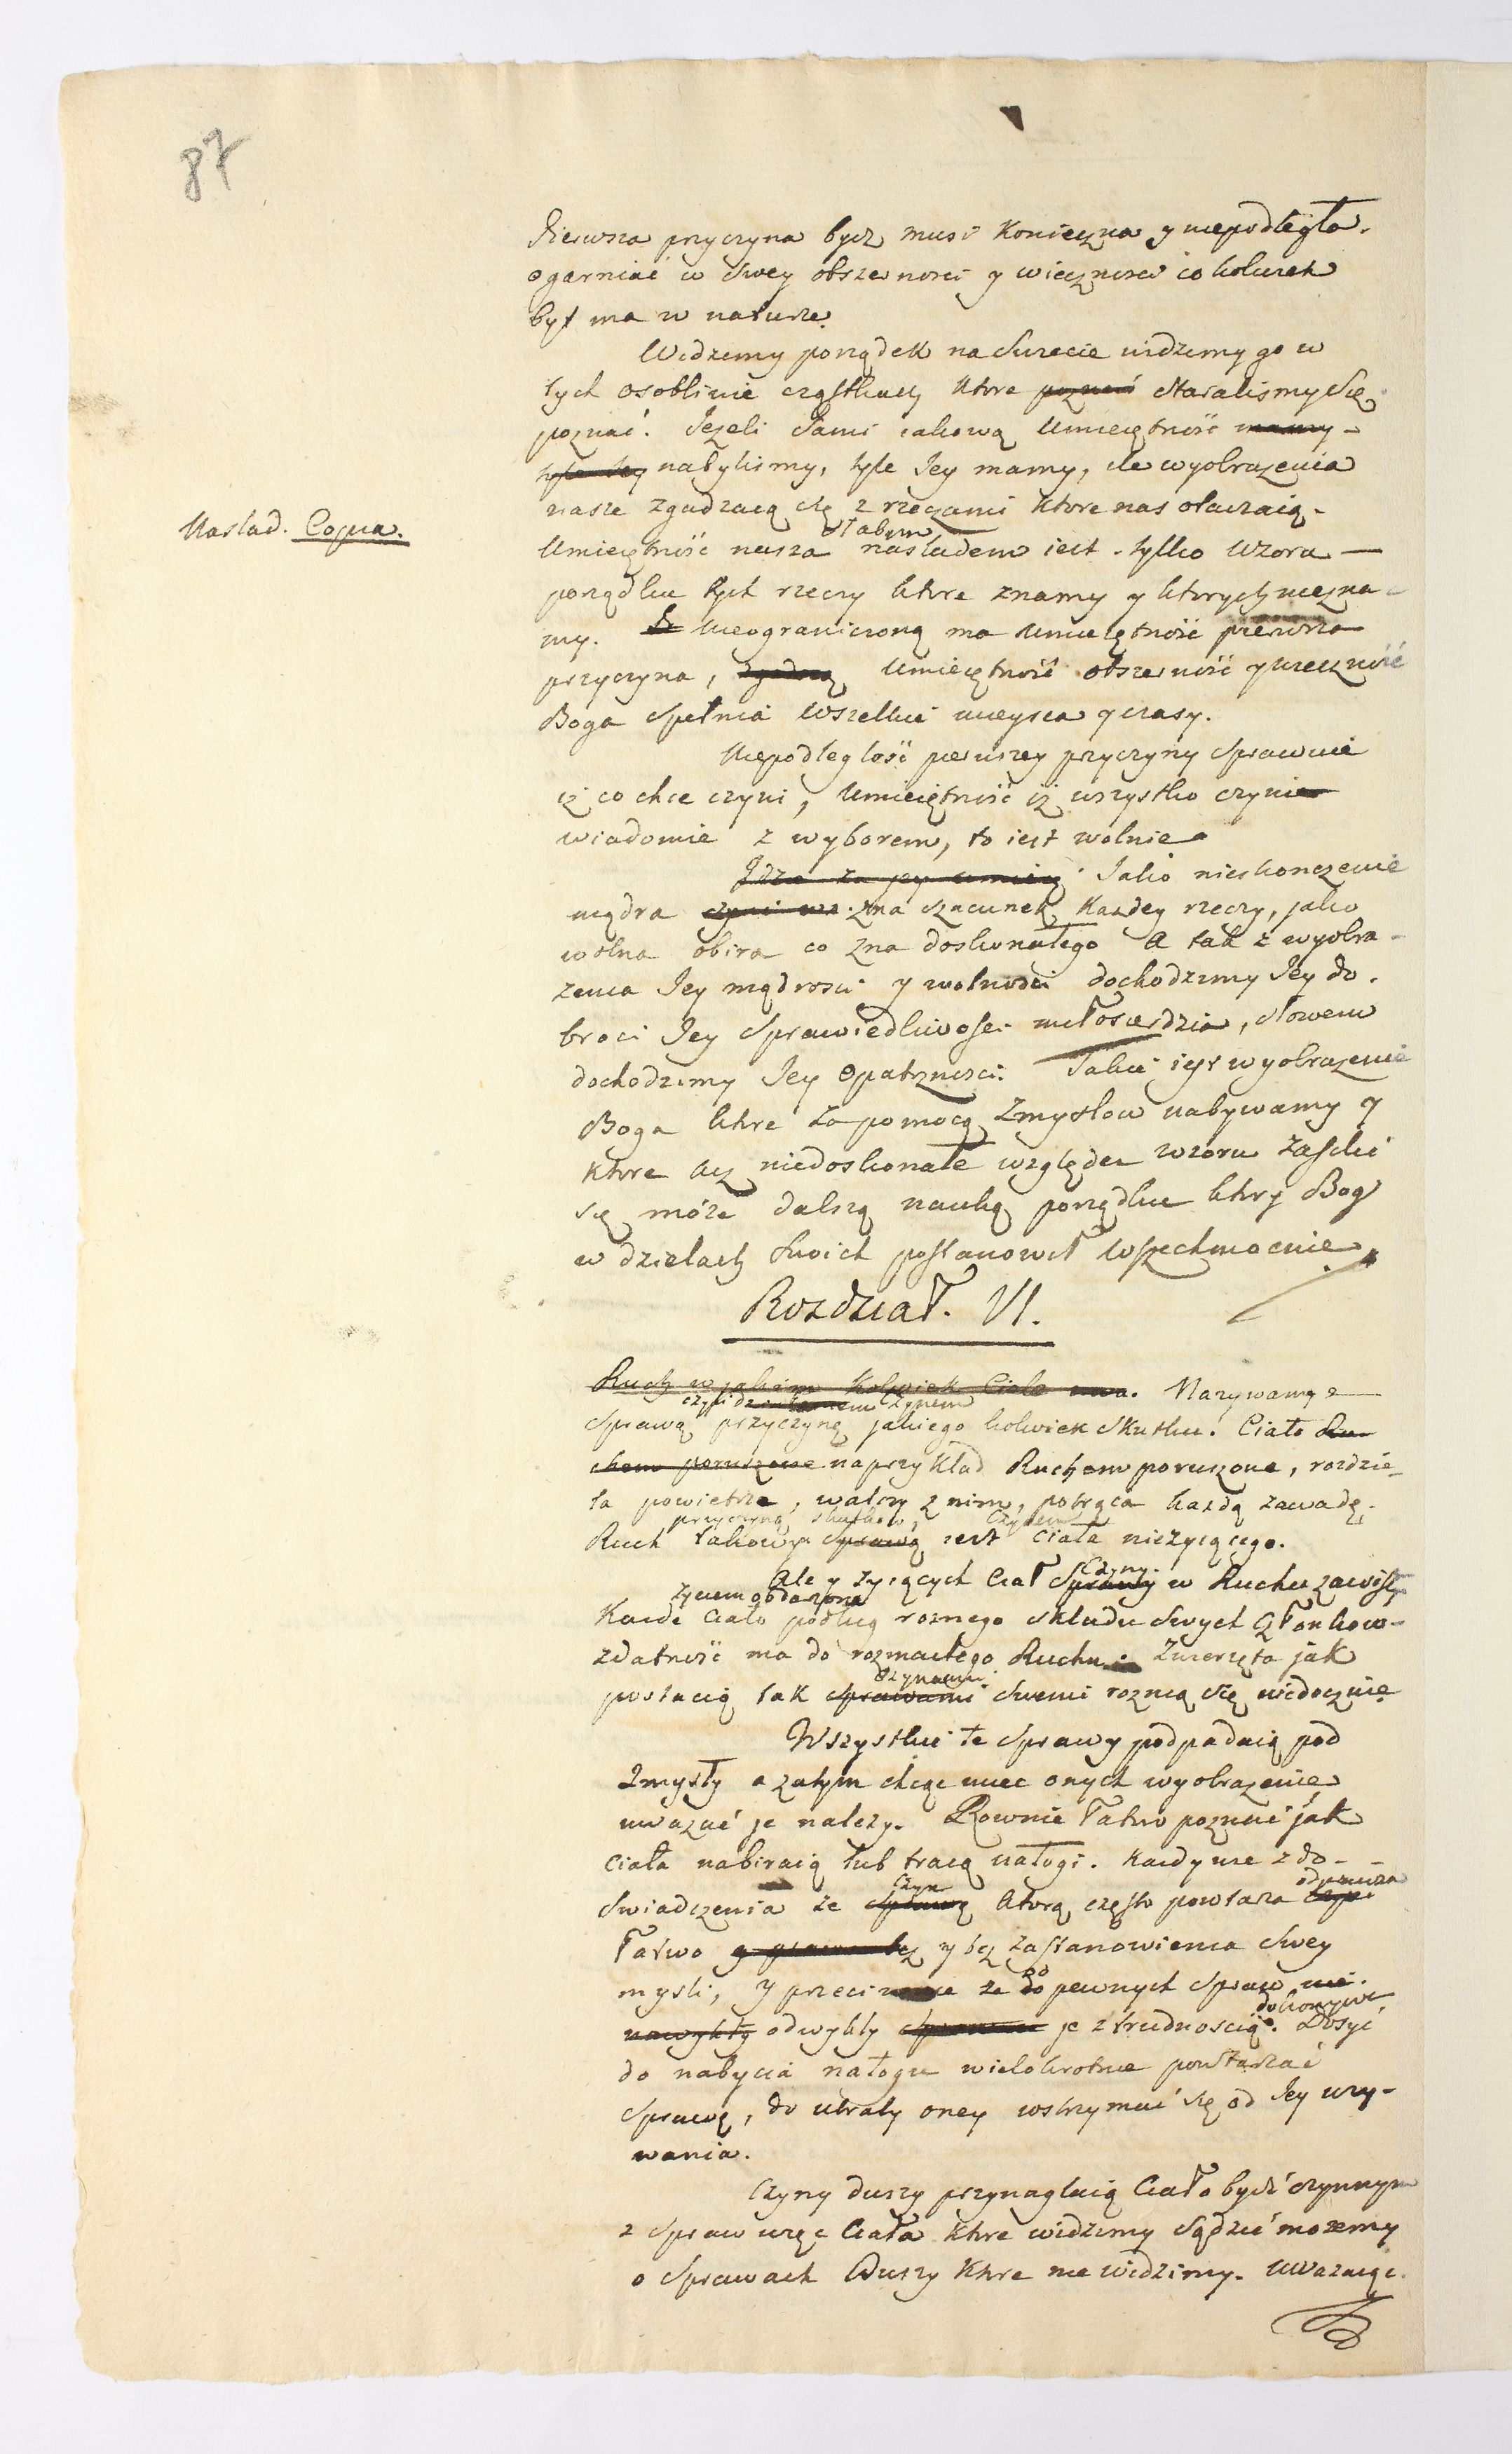 87
Pierwsza przyczyna bydź musi konieczna y niepodległa.
ogarniać w swey obszerności y wieczności cokolwiek
byt ma w naturze.
Widzemy porządek na Swiecie widzemy go w
tych osobliwie cząstkach ktore poznać staralismy Się
poznać. Jeżeli Sami iakową Umieiętność mamy-
tyle Jey nabylismy, tyle Jey mamy, ile wyobrażenia
nasze zgadzaią się z rzeczami ktore nas otaczaią.
Naslad. Copia.
słabym
Umieiętność nasza nasladem iest tylko Wzoru
porządku tych rzeczy ktore znamy y ktorych niezna
my. Nieograniczoną ma Umieiętność pierwsza
przyczyna, Umieiętność obszerność y wieczność
Boga Spełnia Wszelkie mieysca y czasy.
Niepodległość pierwszey przyczyny Sprawuie
iż co chce czyni, Umieiętność iż wszystko czyni
wiadomie z wyborem, to iest wolnie.
Jako nieskonczenie
mądra zna szacunek każdey rzeczy, jako
wolna obira co zna doskonałego A tak z wyobra-
żenia Jey mądrosci y wolności dochodziemy Jey do.
broci Jey Sprawiedliwosci miłosierdzia, słowem
dochodziemy Jey Opatrznosci. Takie iest wyobrażenie
Boga ktore za pomocą Zmysłow nabywamy y
ktore acz niedoskonałe względem wzoru
się może dalszą nauką porządku ktory Bog
w dziełach Swoich postanowił Wszechmocnie.
Rozdział. VI.
Ruch w jakim kolwiek Ciele Nazywamy
czynem
Sprawą przyczynę jakiego kolwiek Skutku. Ciało Ru-
chem poruszone naprzykład Ruchem poruszone, rozdzie-
la powietrze, walczy z nim, potrąca każdą zawadę.
przyczyną skutkow, Czynem
Ruch takowy Sprawą iest Ciała nieżyiącego.
Czyny
Ale y żyiących Ciał Sprawy w Ruchu zawisły
życiem obdarzone
Każde Ciało podług rożnego składu Swych Członkow
zdatność ma do rozmaitego Ruchu. Zwierzęta jak
Czynami
postacią tak Sprawami Swemi rożnią Się widocznie
Wszystkie te Sprawy podpadaią pod
Zmysły a zatym chcąc miec onych wyobrażenie
uważać je należy. Rownie łatwo poznać jak
Ciała nabiraią lub tracą nałogi. Każdy wie z do-
Czyn odprawia
Swiadczenia że Sprawę ktorą często powtarza czyni
łatwo y bez zastanowienia Swey
od
mysli, y przeciwnie że do pewnych Spraw nie.
dokonywa,
nawykły odwykły je z trudnoscią. Dosyć
do nabycia nałogu wielokrotnie powtarzać
Sprawę, do utraty oney wstrzymać się od Jey uży-
wania.
Czyny duszy przynaglaią Ciało bydź czynnym
z Spraw więc Ciała ktore widziemy Sądzić możemy
o Sprawach Duszy ktore nie widziemy. Uważaiąc